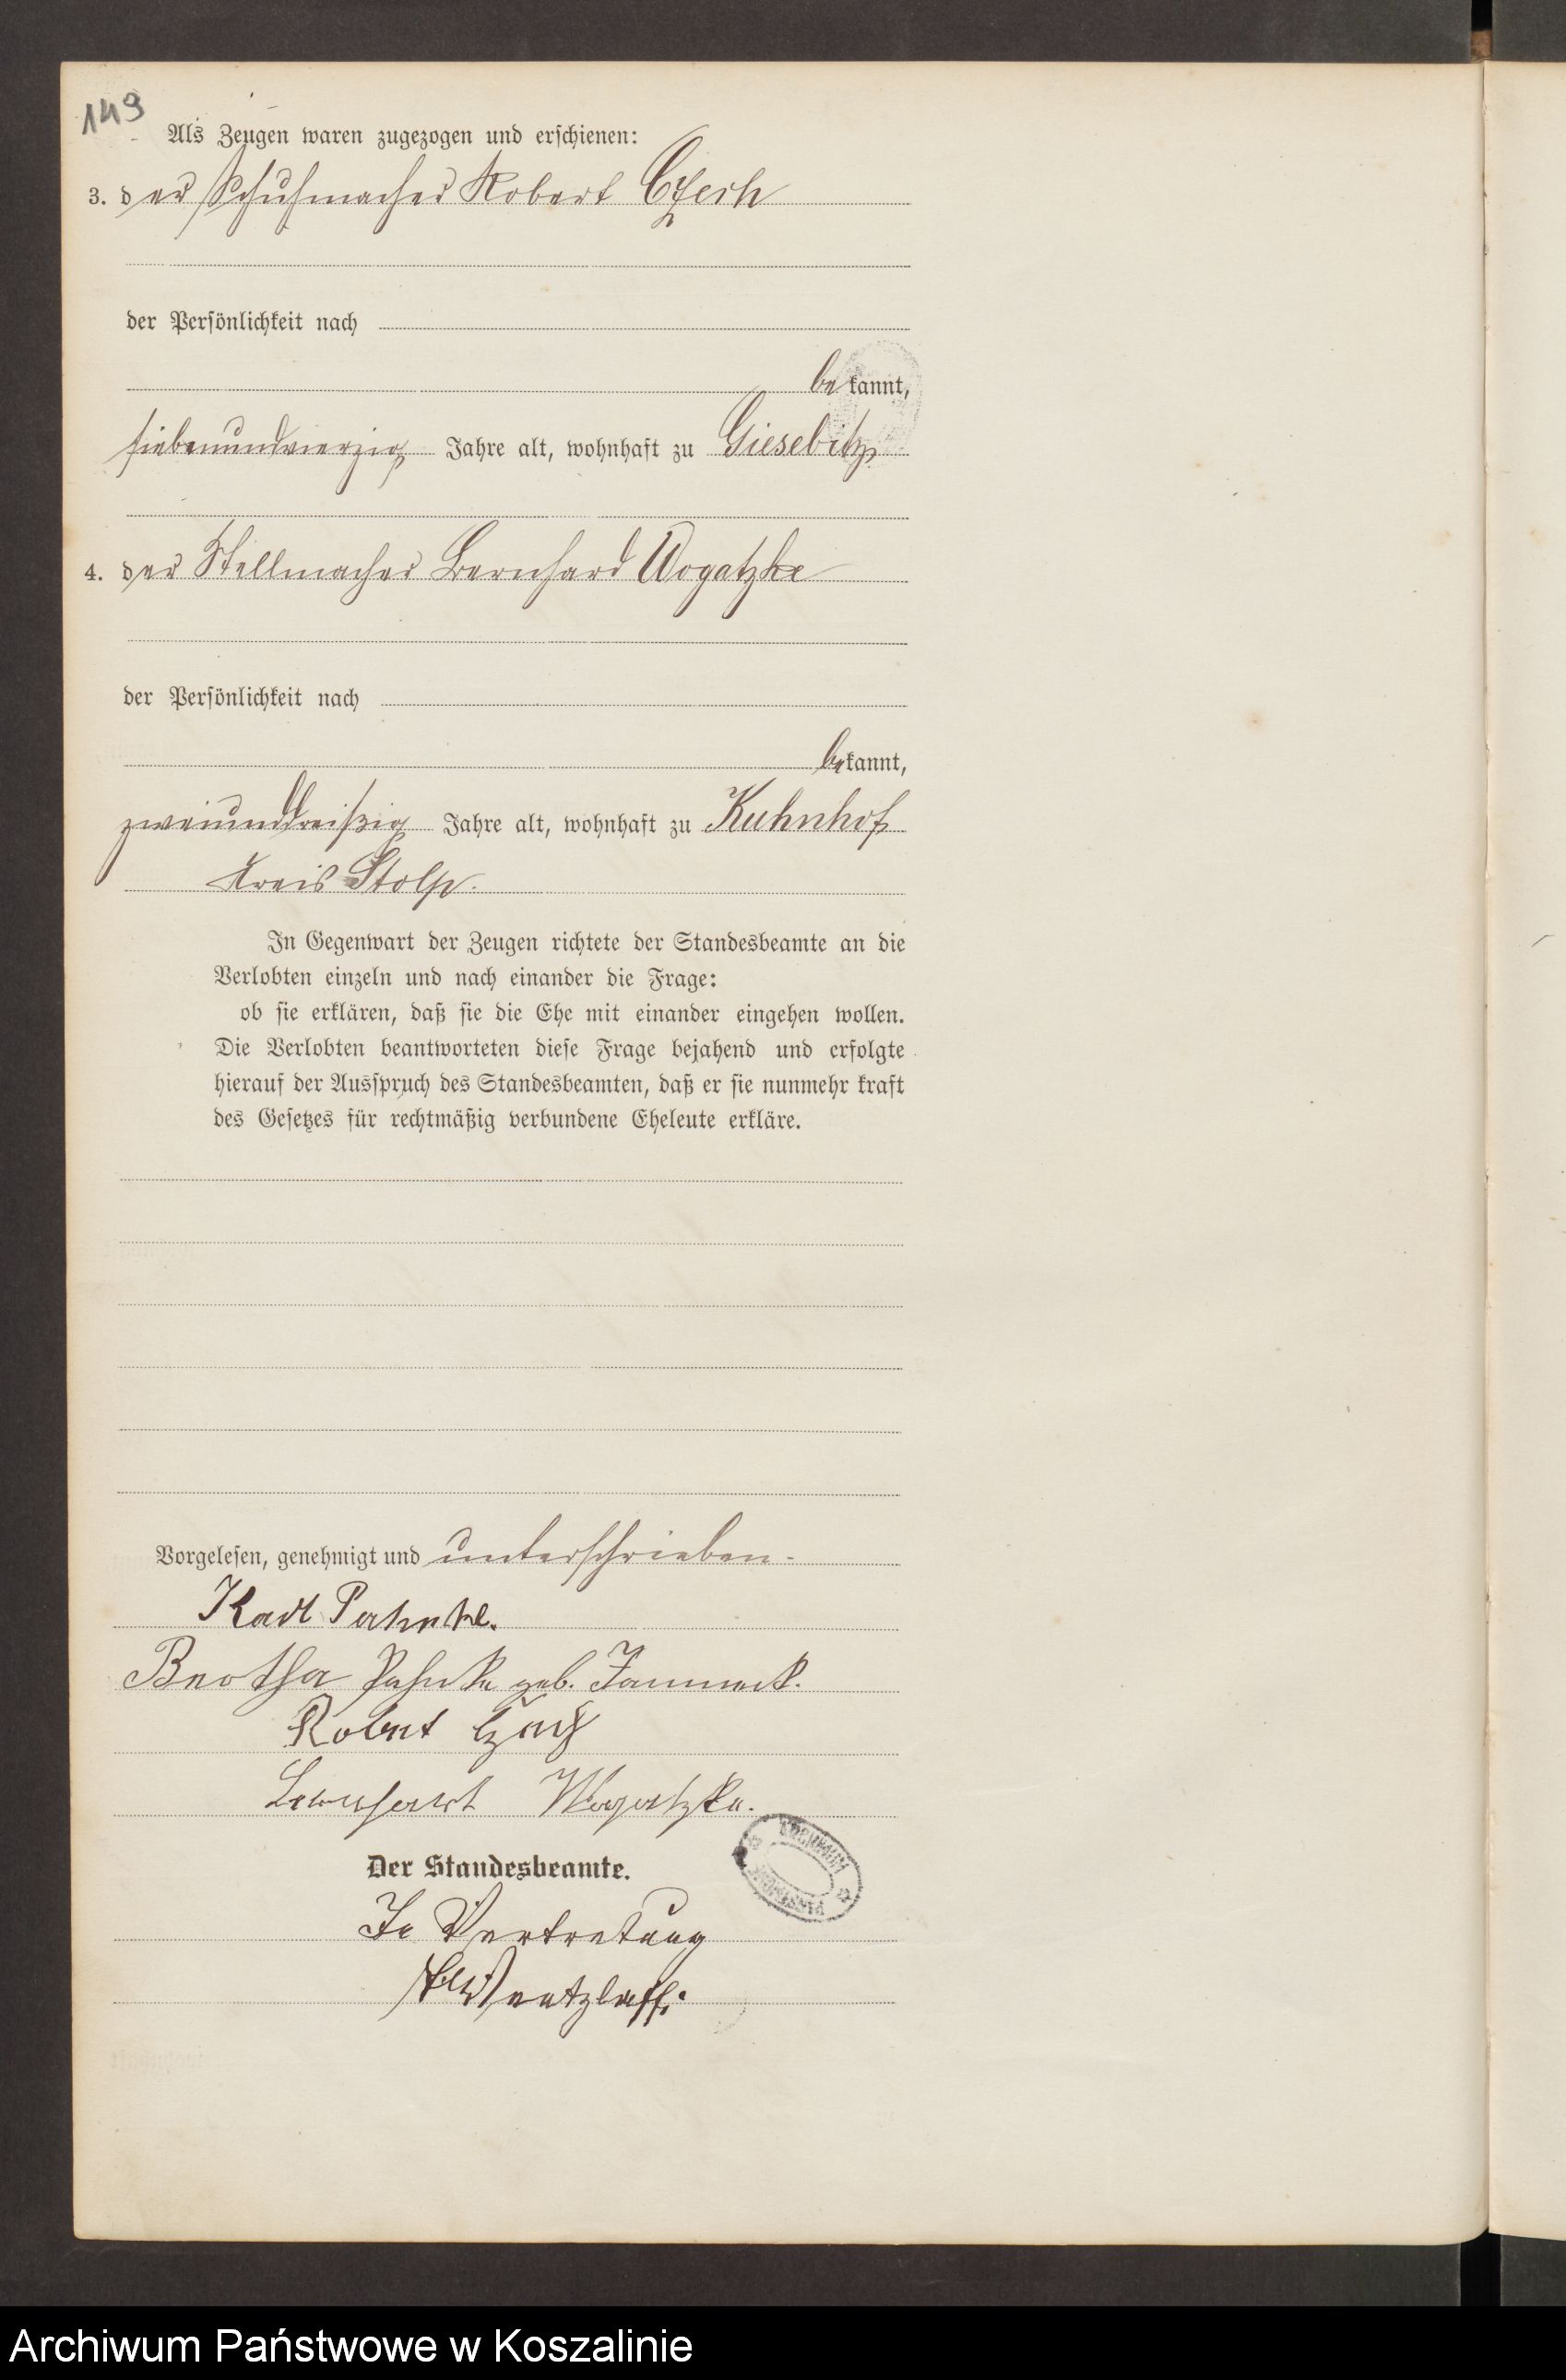 149
Als Zeugen waren zugezogen und erschienen:
3. der Schuhmacher Robert Czech
der Persönlichkeit nach
bekannt,
siebenundvierzig Jahre alt, wohnhaft zu Giesebitz
4. der Stellmacher Bernhard Wogatzke
der Persönlichkeit nach
bekannt,
zweiunddreißig Jahre alt, wohnhaft zu Kuhnhof
Kreis Stolp.
In Gegenwart der Zeugen richtete der Standesbeamte an die
Verlobten einzeln und nach einander die Frage:
ob sie erklären, daß sie die Ehe mit einander eingehen wollen.
Die Verlobten beantworteten diese Frage bejahend und erfolgte
hierauf der Ausspruch des Standesbeamten, daß er sie nunmehr kraft
des Gesetzes für rechtmäßig verbundene Eheleute erkläre.
Vorgelesen, genehmigt und unterschrieben.
Karl Pahnke.
Bertha Pahnke geb.
Robert Czech
Bernhard Wogatzke.
Der Standesbeamte.
In Vertretung
Wentzlaff.
ARCHIWUM
Archiwum Państwowe w Koszalinie